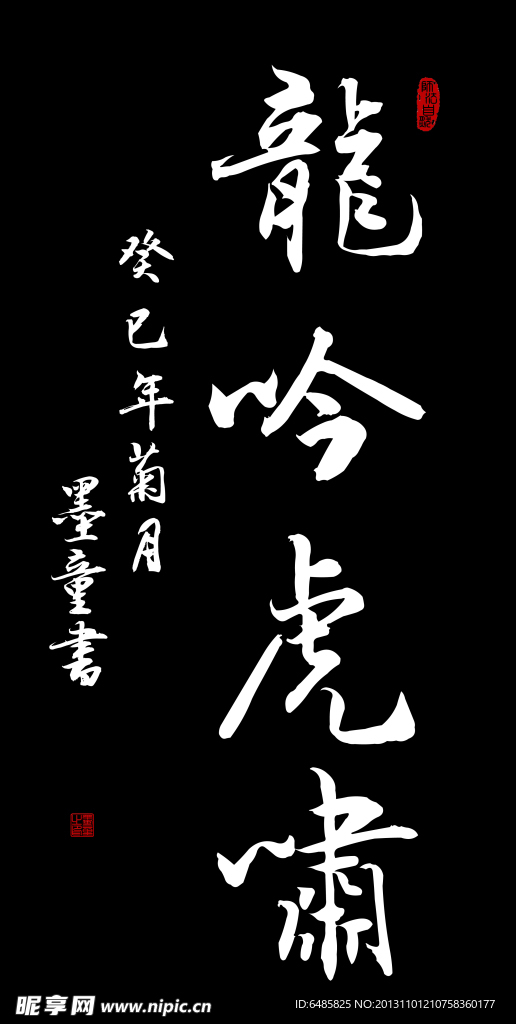 龍吟虎嘯
癸巳年菊月
墨童書
昵享网 www.nipic.cn
ID:6485825 NO:20131101210758360177